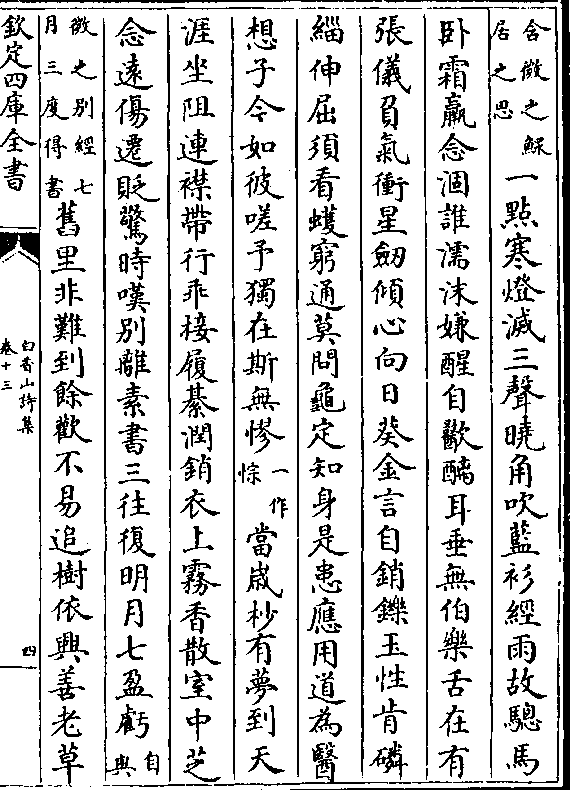 含微之鰥居之思一點寒燈滅三聲曉角吹藍衫經雨故驄馬
卧霜羸念涸誰濡沫嫌醒自歠醨耳垂無伯樂舌在有
張儀負氣衝星劒傾心向日葵金言自銷鑠玉性肯磷
緇伸屈須看蠖窮通莫問龜定知身是患應用道為醫
想子今如彼嗟予獨在斯無憀一作悰當歲杪有夢到天
涯坐阻連襟帶行乖接履綦潤銷衣上霧香散室中芝
念遠傷遷貶驚時嘆別離素書三往復明月七盈虧自與
微之別經七月三度得書舊里非難到餘歡不易追樹依興善老草
欽定四庫全書
白香山詩集
卷十三
四